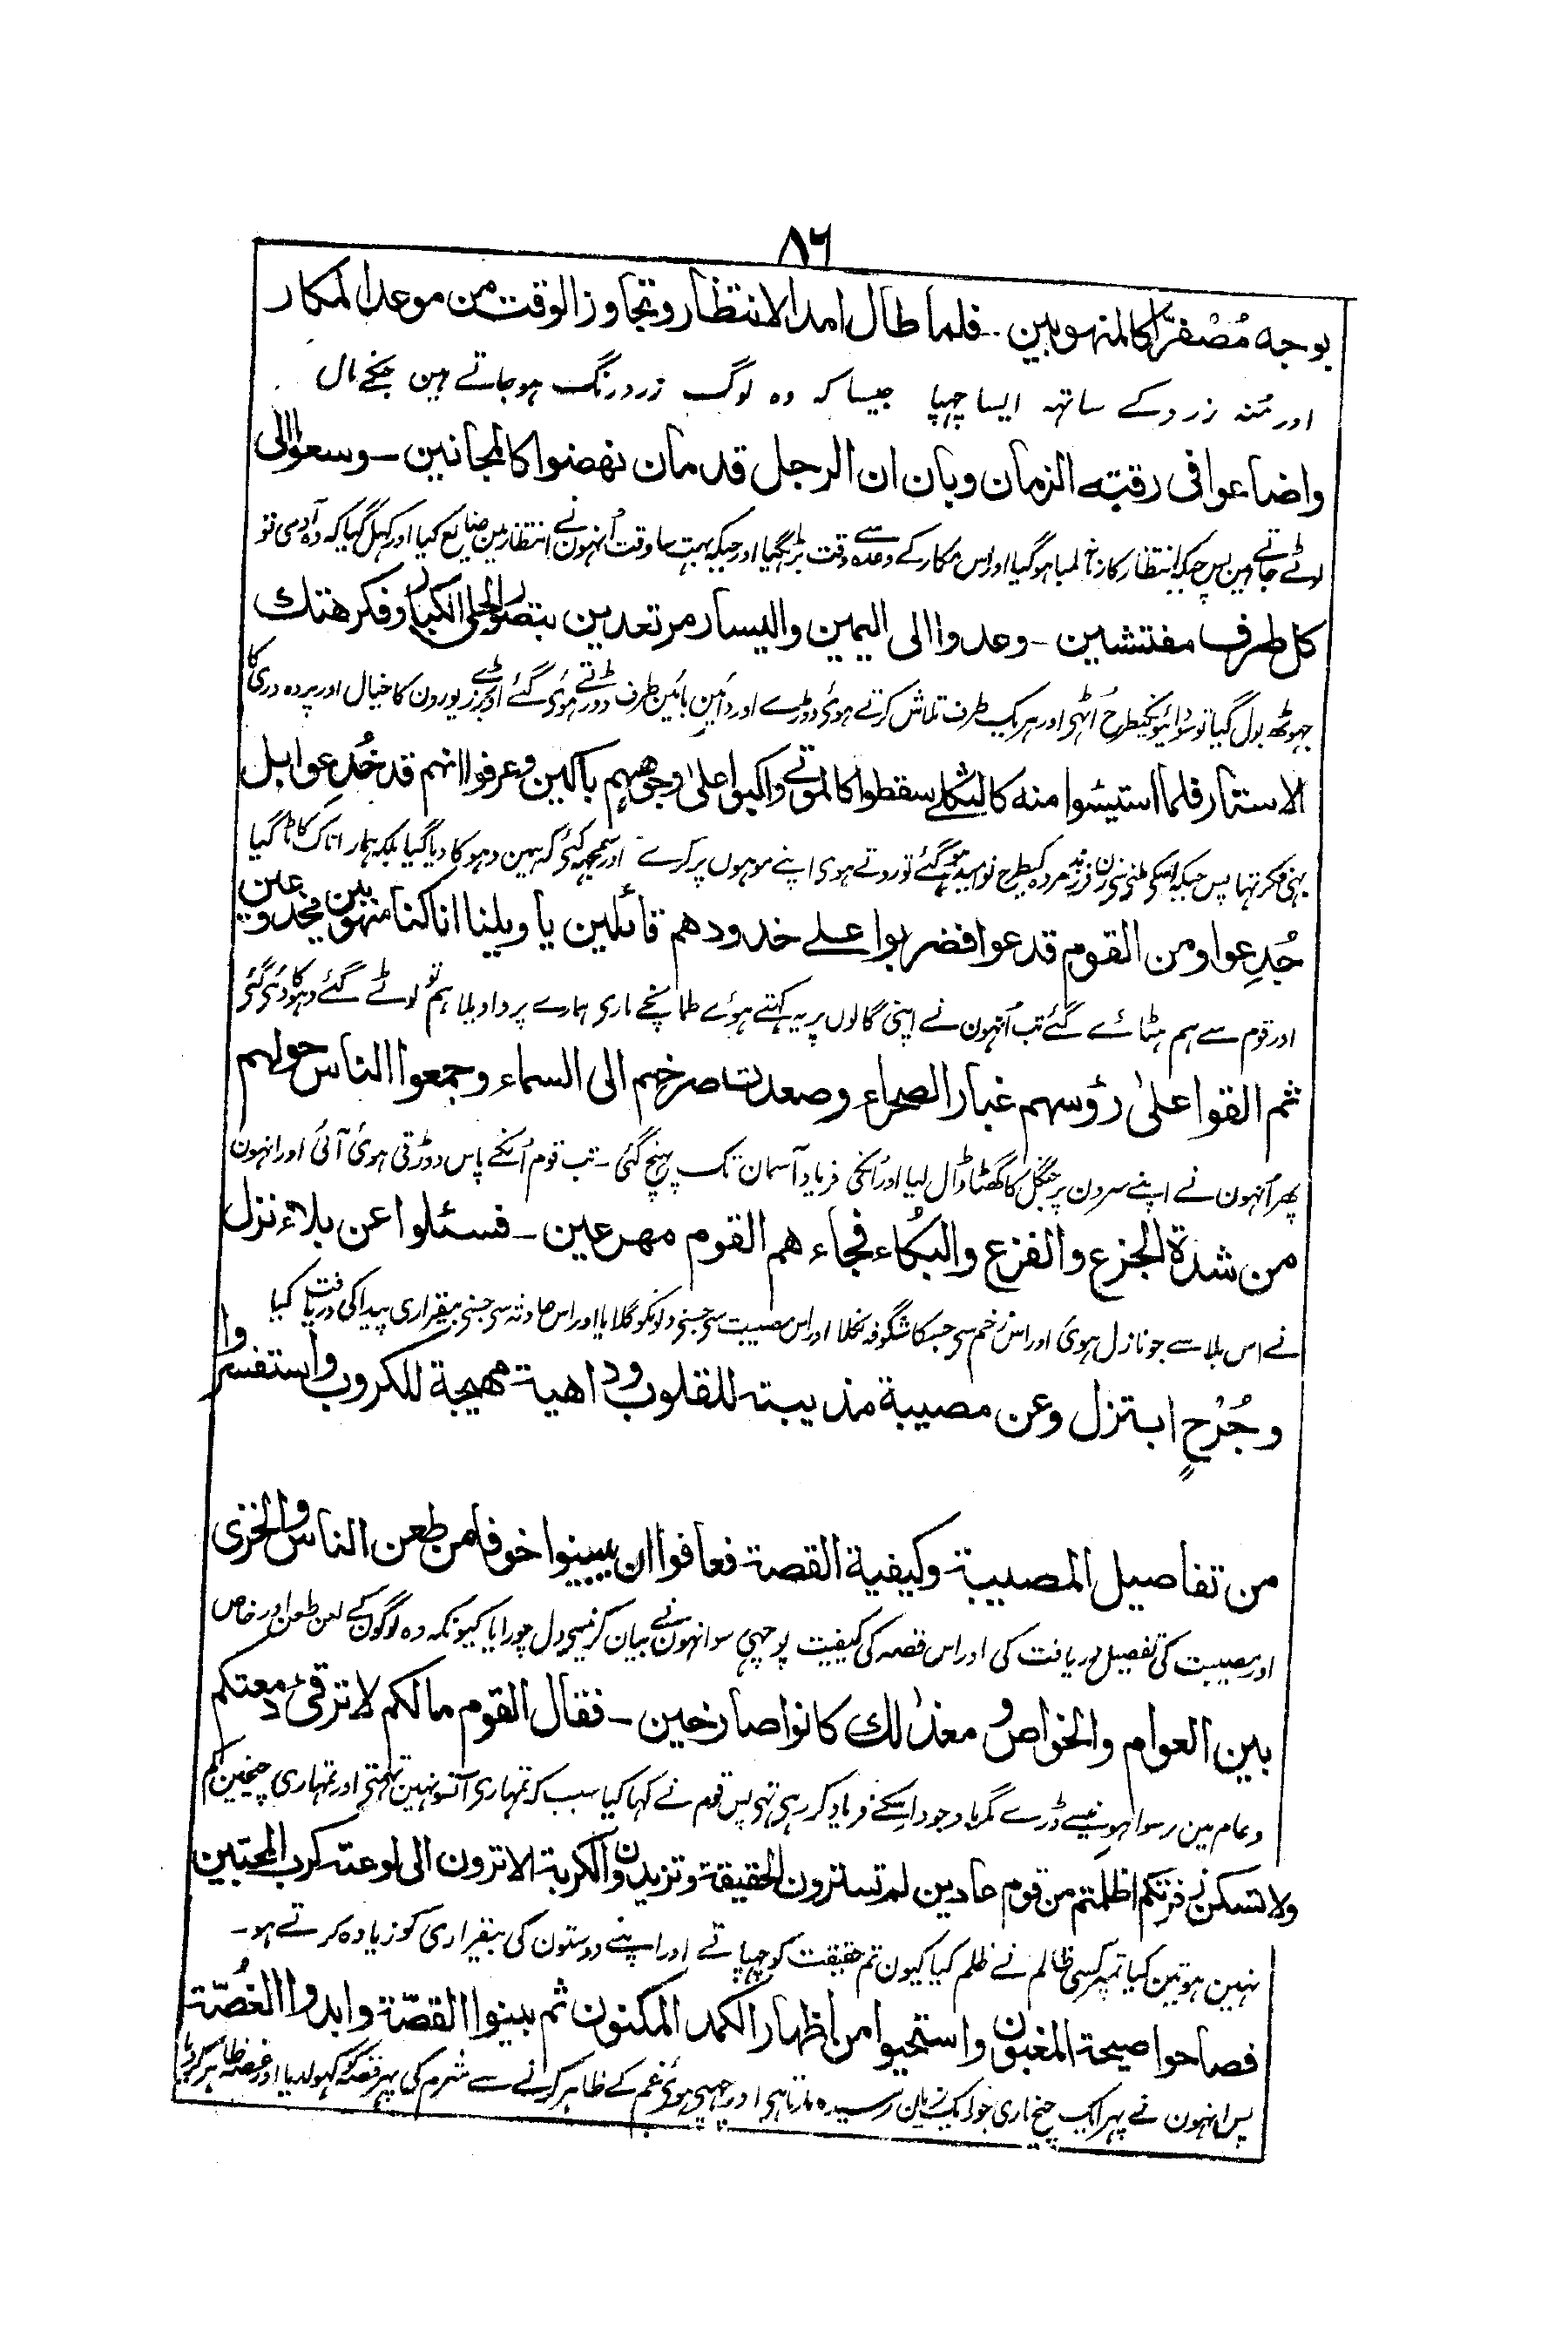 ٨٦
بوجه مُصْفرّ كالمنهوبين ۔ فلما طال امد الانتظار وتجاوز الوقت من موعد المكار
اور مُنہ زرد کے ساتھہ ایسا چہپا جیسا کہ وہ لوگ زرد رنگ ہو جاتے ہین جنکے مال
واضاعوا فى رقبته الزمان وبان ان الرجل قد مان نهضوا كالمجانين ۔ وسعوا الى
لوٹے جاتے ہین پس جبکہ انتظار کا زمانہ لمبا ہو گیا اور اس مکار کے وعدہ سے وقت بڑہ گیا اور جبکہ بہت سا وقت اُنہون نے انتظار مین ضایع کیا اور کہل گیا کہ وہ آدمی تو
كل طرف مفتشين ۔ وعدوا الى اليمين واليسار مرتعدين بتصور الحلى الكبار وفكر هتك
جہوٹھ بول گیا تو سودائیونکیطرح اُٹہی اور ہریک طرف تلاش کرتے ہوئی دوڑے اور دائین بائین طرف دوڑتے ہوئی گئے اور بڑے زیورون کا خیال اور پردہ دری کا
الاستار فلما استيئسوا منه كالثكلى سقطوا كالموتى واكبوا على وجوههم باكين وعرفوا انهم قد خُدِعوا بل
بہی فکر تہا پس جبکہ اسکی ملنی سی زن فرزند مردہ کیطرح نوامید ہو گئے تو روتے ہوی اپنے موہوں پر گرے اور سمجہہ گئی کہ ہمین دہوکا دیا گیا بلکہ ہمارا ناک کاٹا گیا
جُدِعوا ومن القوم قد عوا فضربوا على خدودهم قائلين يا ويلنا انا كنا منهوبين مخدوعين
اور قوم سے ہم ہٹائے گئے تب اُنہون نے اپنی گالوں پر یہ کہتے ہوئے طمانچے ماری ہمارے پر واویلا ہم تو لوٹے گئے دہوکا دئی گئی
ثم القوا على رؤسهم غبار الصحراء وصعدت صرخهم الى السماء وجمعوا الناس حولهم
پہر اُنہون نے اپنے سرون پر جنگل کا گھٹا ڈال لیا اور اُنکی فریاد آسمان تک پہنچ گئی ۔ تب قوم اُنکے پاس دوڑتی ہوئی آئی اور انہون
من شدة الجزع والفزع والبُكاء فجاء هم القوم مهرعين ۔ فسئلوا عن بلاءٍ نزل
نے اس بلا سے جو نازل ہوئ اور اس زخم سی جسکا شگوفہ نکلا اور اس مصیبت سی جسنی دلونکو گلایا اور اس حادثہ سی جسنی بیقراری پیدا کی دریافت کیا
وجُرْحٍ ابتزل وعن مصيبة مذيبته للقلوب وداهية مهيجة للكروب واستفسروا
من تفاصيل المصيبة وكيفية القصة فعافوا ان يبينوا خوفا من طعن الناس والخزى
اور مصیبت کی تفصیل دریافت کی اور اس قصہ کی کیفیت پوچہی سو انہون نے بیان کرنیسی دل چورایا کیونکہ وہ لوگون کے لعن طعن اور خاص
بين العوام والخواص و معذٰلك كانوا صارخين ۔ فقال القوم ما لكم لا ترقئ دمعتكم
و عام مین رسوا ہونیسے ڈرے مگر باوجود اسکے فریاد کر رہی تہی پس قوم نے کہا کیا سبب کہ تمہاری آنسو نہین تہمتی اور تمہاری چیخین کم
ولا تسكن زفرتكم اظلمتم من قوم عادين لم تسترون الحقيقة وتزيدون الكربة الا ترون الى لوعته كرب المحبّين
نہین ہوتین کیا تمپر کسی ظالم نے ظلم کیا کیون تم حقیقت کو چہپاتے اور اپنے دوستون کی بیقراری کو زیادہ کرتے ہو ۔
فصاحوا صيحة المغبون واستحيوا من اظهار الكمد المكنون ثم بينوا القصّة وابدوا الغُصّة
پس انہون نے پہر ایک چیخ ماری جو ایک زیان رسیدہ مارتا ہی اور چہپی ہوئی غم کے ظاہر کرنے سے شرم کی پہر قصہ کو کہولدیا اور غصہ ظاہر کر دیا